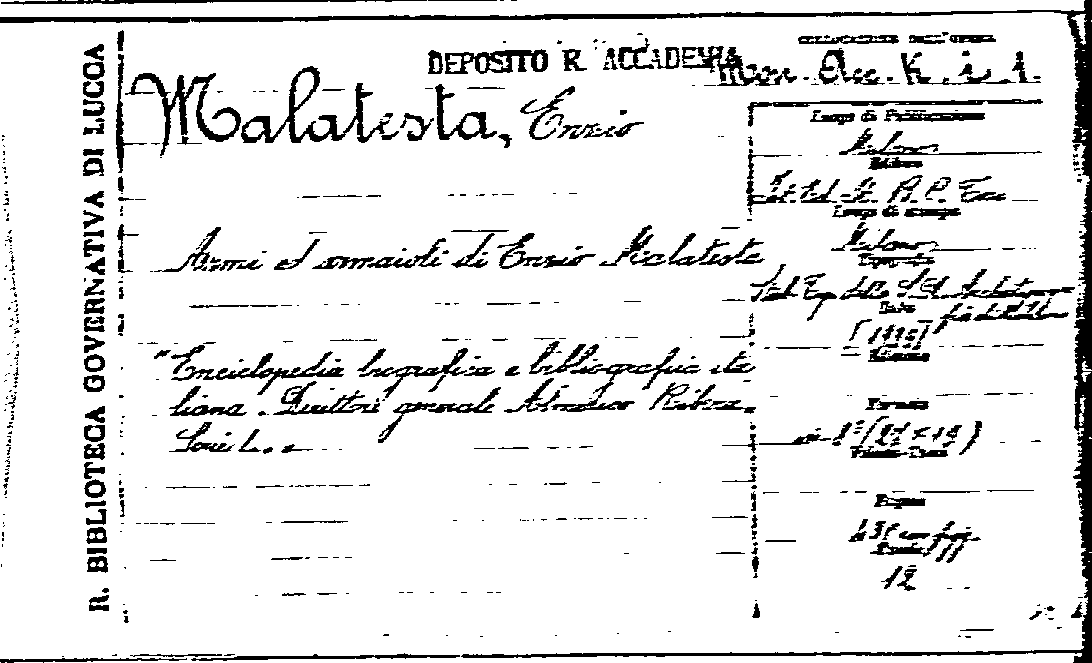 R. BIBLIOTECA GOVERNATIVA DI LUCCA
DEPOSITO R. ACCADEMIA
COLLOCAZIONE DELL'OPERA
Mon. Acc. K. i. 1.
Malatesta, Enzio
Armi ed armaioli di Enzio Malatesta
"Enciclopedia biografica e bibliografica ita
liana. Direttore generale Almerico Ribera.
Serie L..
Luogo di Pubblicazione
Milano
Editore
Ist. Ed. It. B. C. Tosi
Luogo di stampa
Milano
Tipografia
Data
Edizione
Formato
in 8° (25 × 19)
Pagine
con figg
12